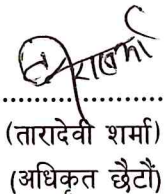 ..............................
(तारादेवी शर्मा)
(अधिकृत छैटौं)